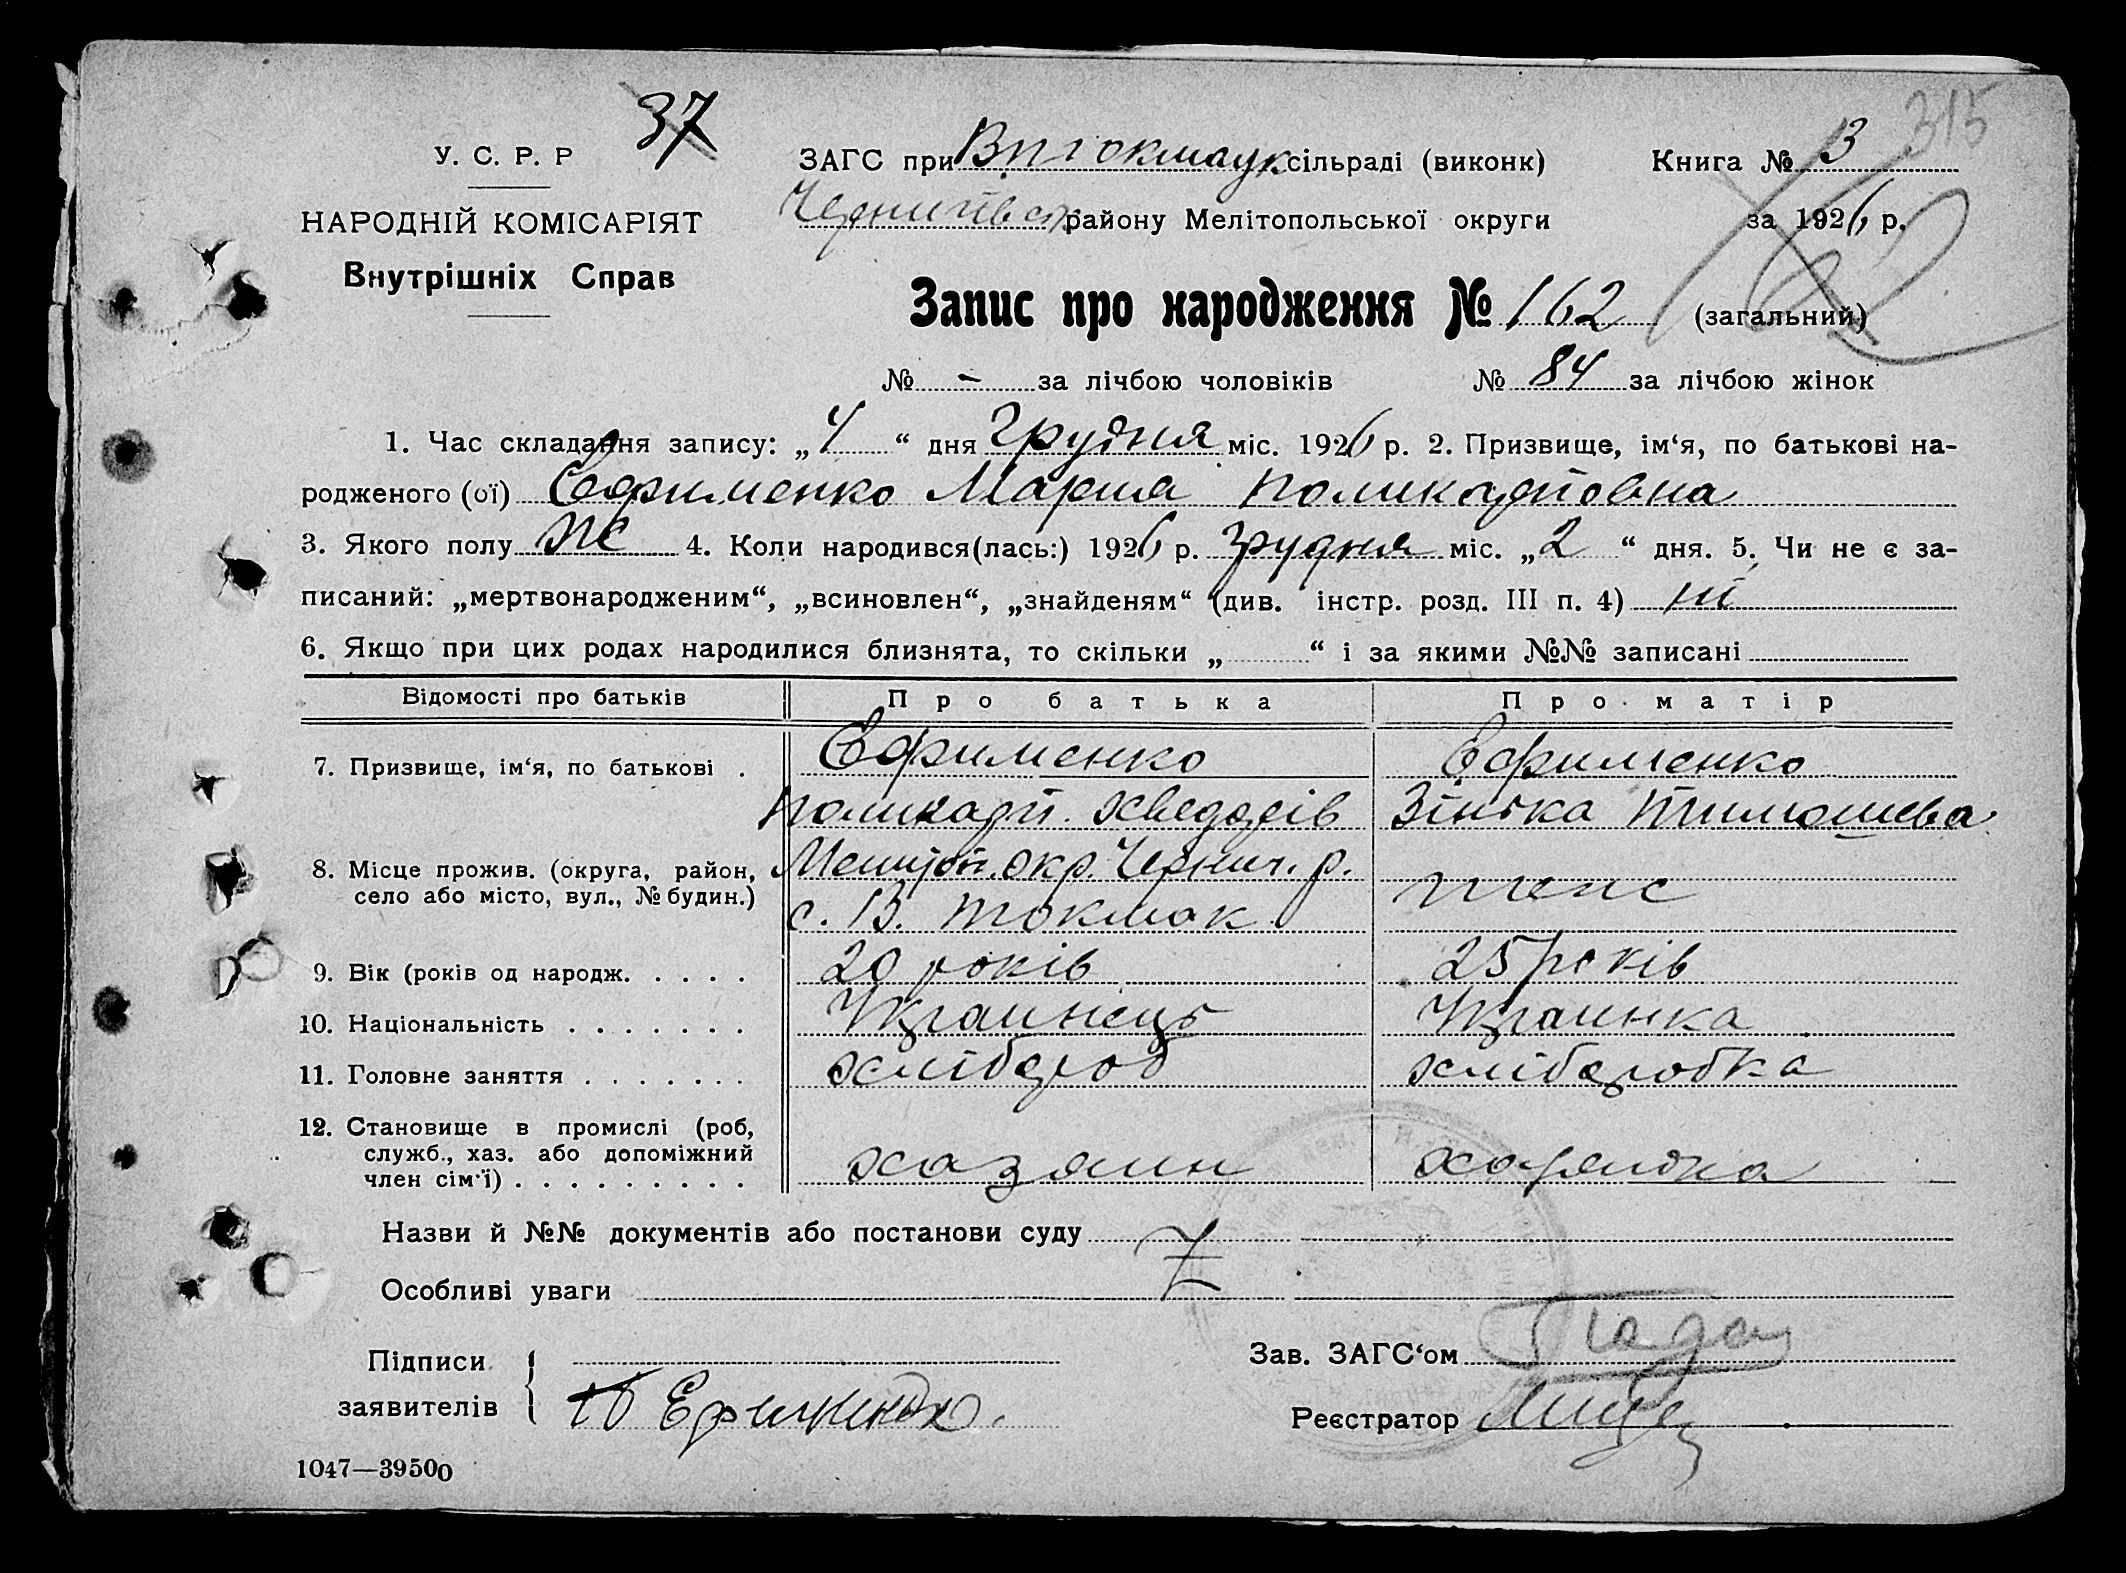 37
315
У. С. Р. Р
ЗАГС при сільраді (виконк) Книга № 3
НАРОДНІЙ КОМІСАРІЯТ
району Мелітопольської округи за 1926 р.
Внутрішніх Справ
Запис про народження № 162 (загальний)
№ - за лічбою чоловіків № 84 за лічбою жінок
1. Час складання запису: „4“ дня Грудня міс. 1926 р. 2. Призвище, ім‘я, по батькові на-
родженого (ої) Єфрименко Мария Поликарповна
3. Якого полу Ж 4. Коли народився(лась:) 1926 р. Грудня міс. „2“ дня. 5. Чи не є за-
писаний: „мертвонародженим“, „всиновлен“, „знайденям“ (див. інстр. розд. III п. 4) ні
6. Якщо при цих родах народилися близнята, то скільки „ “ і за якими №№ записані
Відомості про батьків Про батька Про матір
7. Призвище, ім‘я, по батькові . Єфрименко Єфрименко
Поликарп. Хведорів Зінька Тимошева
8. Місце прожив. (округа, район, Меліт. окр. Черниг. р.
село або місто, вул., № будин.) с. В. Токмак теж
9. Вік (років од народж. . . . . 20 років 25 років
10. Національність . . . . . . . Украинець Украинка
11. Головне заняття . . . . . . . хлібороб хліборобка
12. Становище в промислі (роб,
служб., хаз. або допоміжний хазяин хазяйка
член сім‘ї) . . . . . . . . .
Назви й №№ документів або постанови суду
Особливі уваги
Підписи Зав. ЗАГС‘ом
заявителів Реєстратор
1047—39500